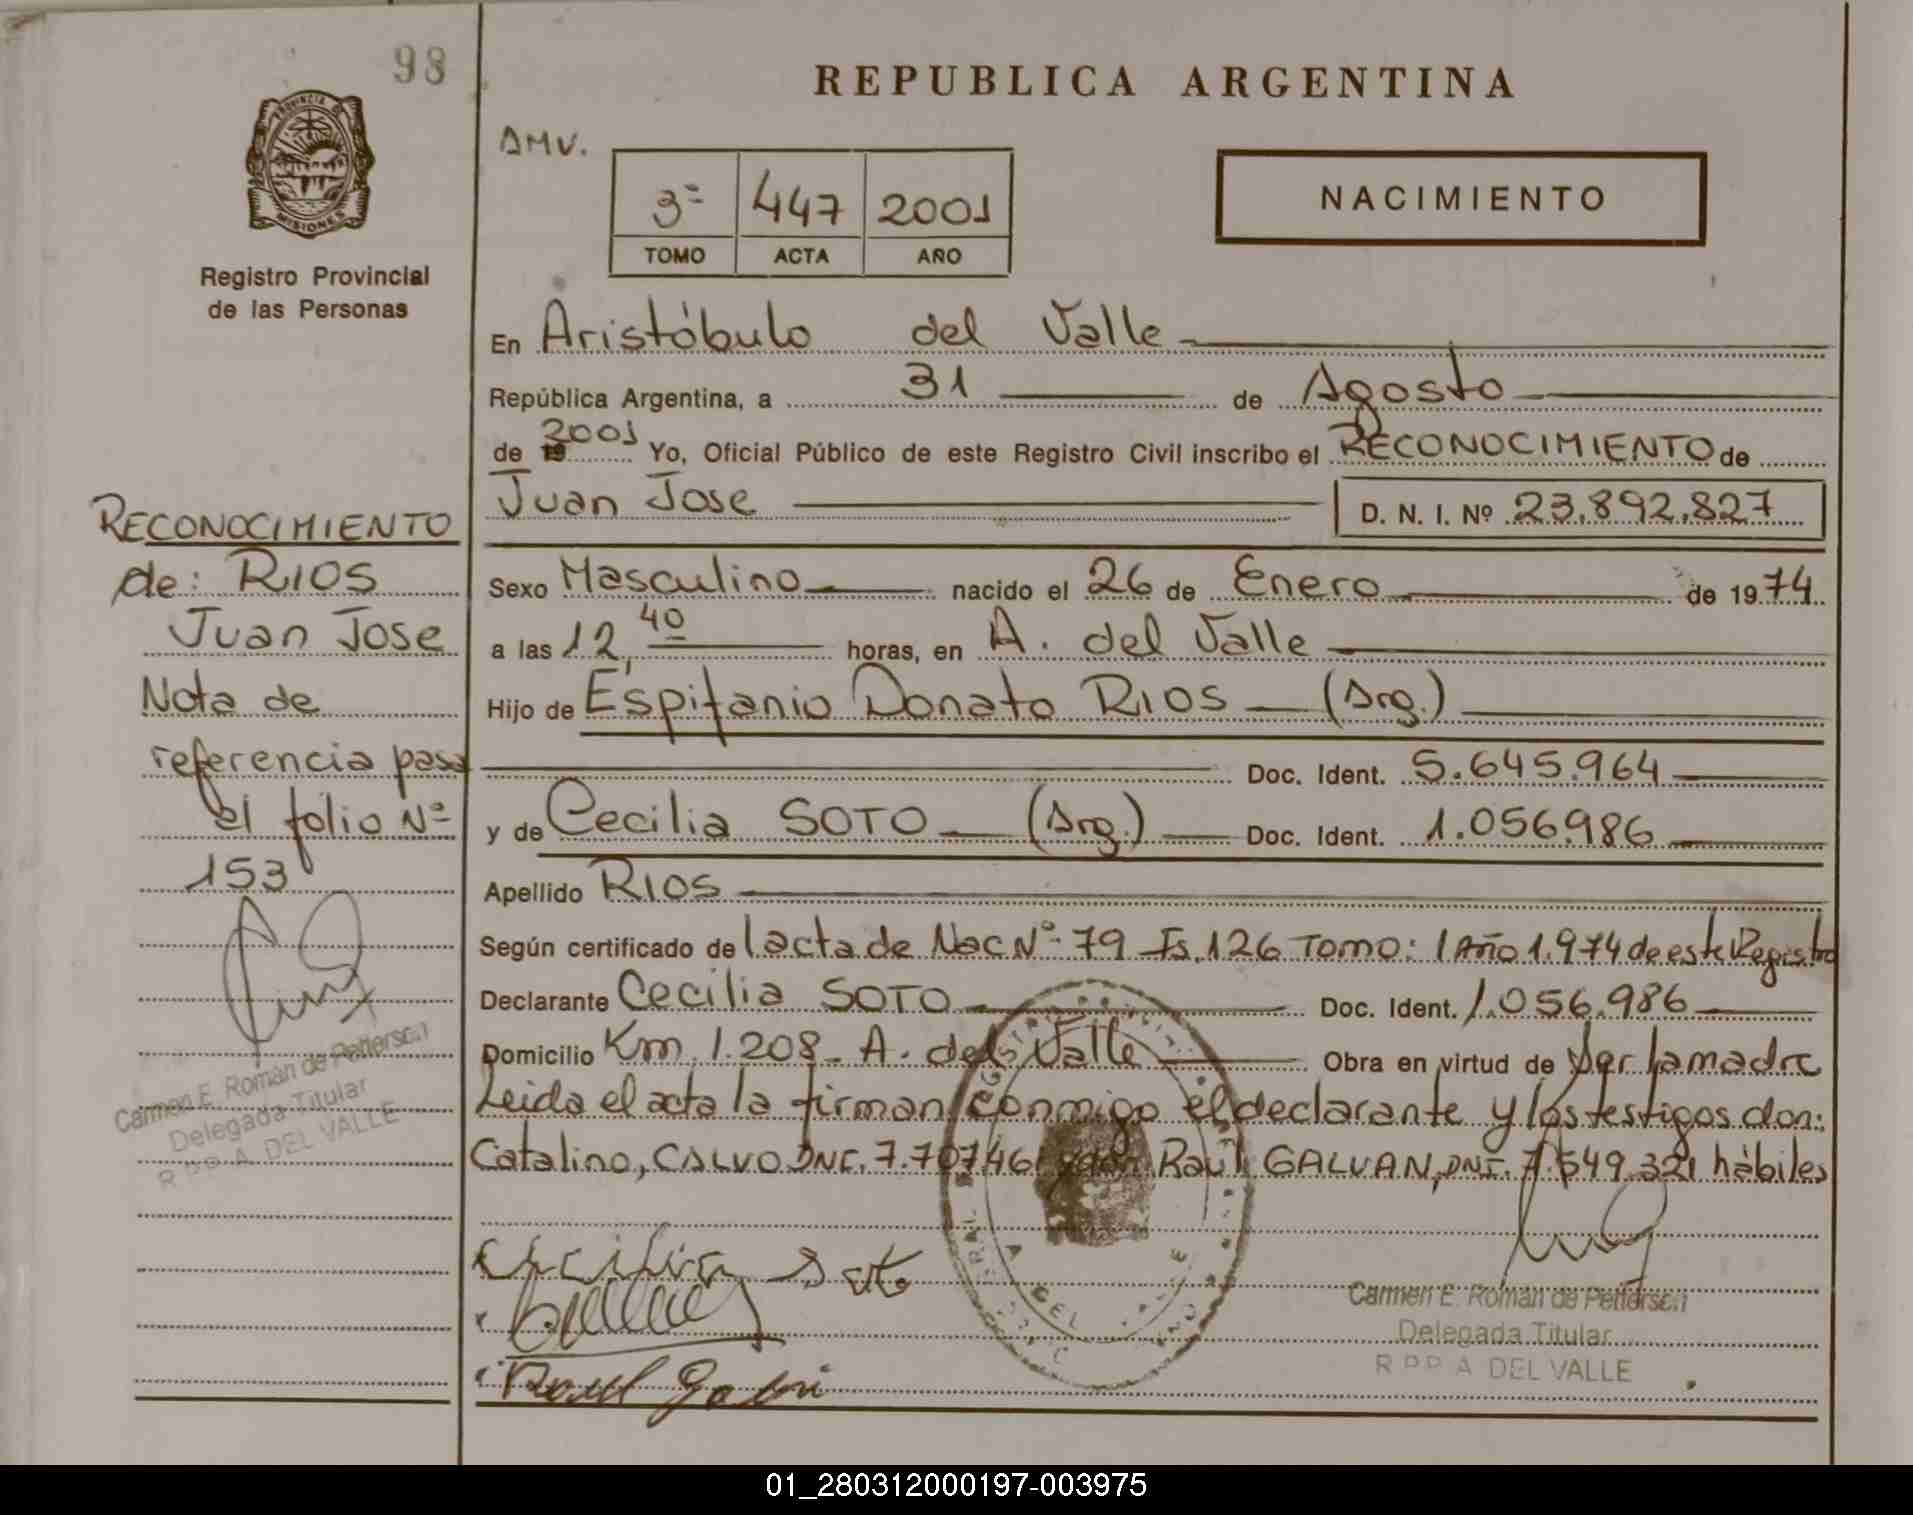 98
PROVINCIA DE
MISIONES
Registro Provincial
de las Personas
REPUBLICA ARGENTINA
AMV.
3º 447 2001
TOMO ACTA AÑO
NACIMIENTO
En Aristóbulo del Valle
República Argentina, a 31 de Agosto
de 19 2001 Yo, Oficial Público de este Registro Civil inscribo el RECONOCIMIENTO de
Juan Jose D. N. I. Nº 23.892.827
Sexo Masculino nacido el 26 de Enero de 1974
a las 12,40 horas, en A. del Valle
Hijo de Espifanio Donato RIOS (Arg.)
Doc. Ident. 5.645.964
y de Cecilia SOTO (Arg.) Doc. Ident. 1.056986
Apellido RIOS
Según certificado de l acta de Nac Nº 79 Fs. 126 Tomo: 1 Año 1.974 de este Registro
Declarante Cecilia SOTO Doc. Ident. 1.056.986
Domicilio Km. 1.208 - A. del Valle Obra en virtud de Ser la madre
Leida el acta la firman conmigo el declarante y los testigos don:
Catalino, CALVO DNI. 7.707461 y don Raúl GALVAN, DNI. 7.549.321 hábiles
RECONOCIMIENTO
de: RIOS
Juan Jose
Nota de
referencia pasa
el folio Nº
153
Carmen E. Román de Petterson
Delegada Titular
R P P A DEL VALLE
Cecilia Soto
Raul
Carmen E. Román de Petterson
Delegada Titular
R P P A DEL VALLE
01_280312000197-003975